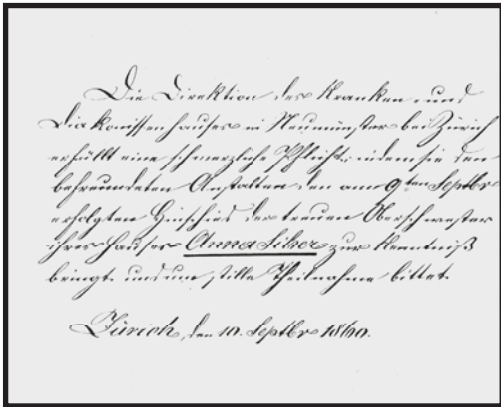 Die Direktion des Kranken- und
Diakonissenhauses in Neumünster bei Zürich
erfüllt eine schmerzliche Pflicht, indem sie den
befreundeten Anstalten den am 9ten Septbr
erfolgten Hinschied der treuen Oberschwester
ihres Hauses Anna Liher zur Kenntniß
bringt und um stille Theilnahme bittet.
Zürich, den 10. Septbr